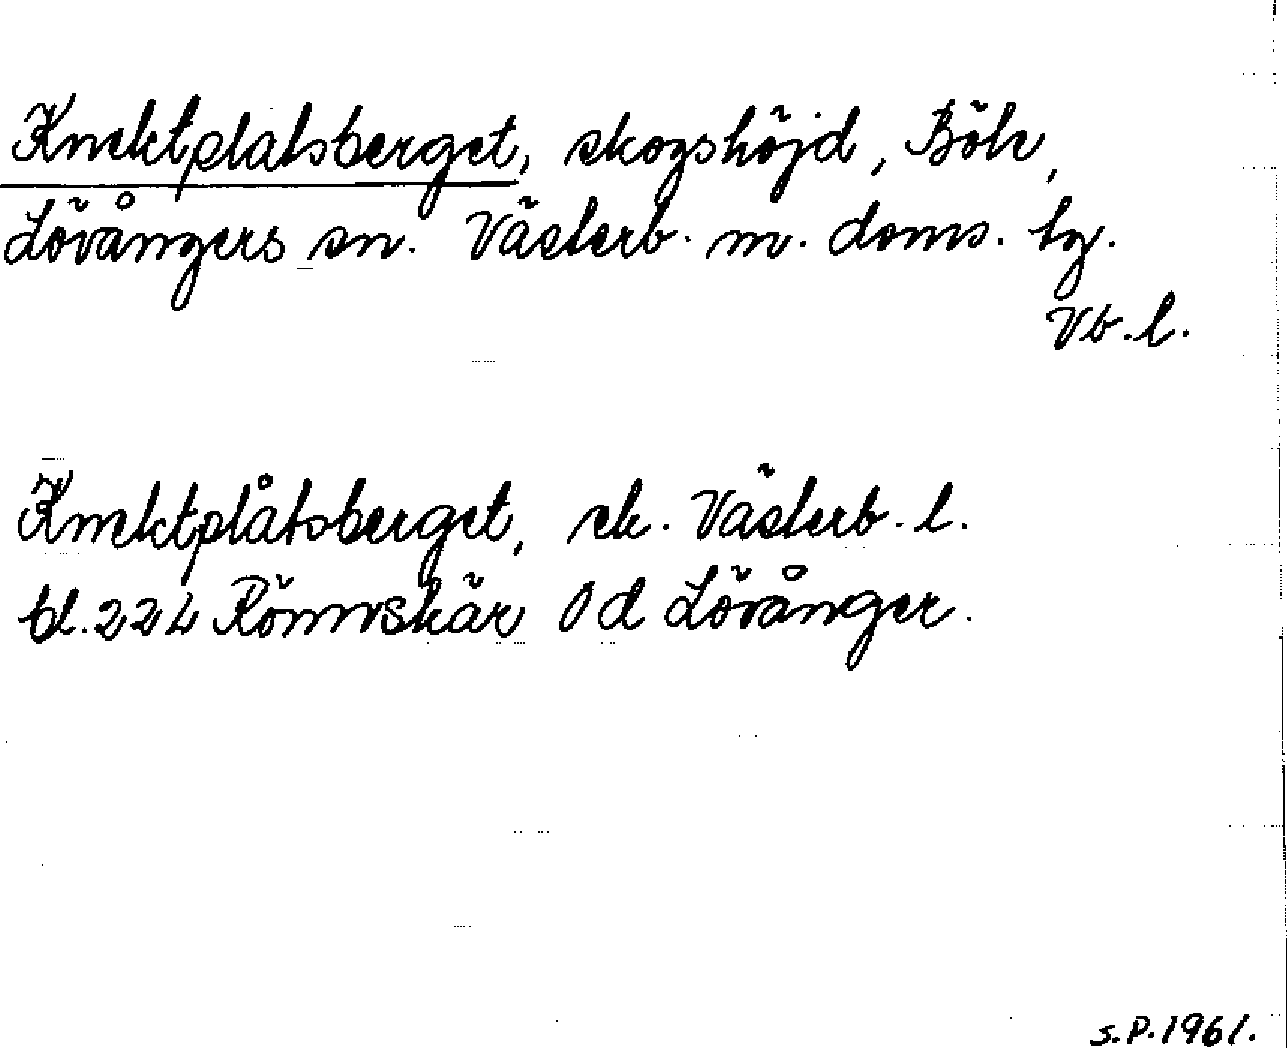 Knektplatsberget, skogshöjd, Böle,
Lövångers sn. Västerb. m. doms. tg.
Vb.l.
Knektplåtsberget, ek. Västerb. l.
bl. 224 Rönnskär Od Lövånger.
S.P. 1961.